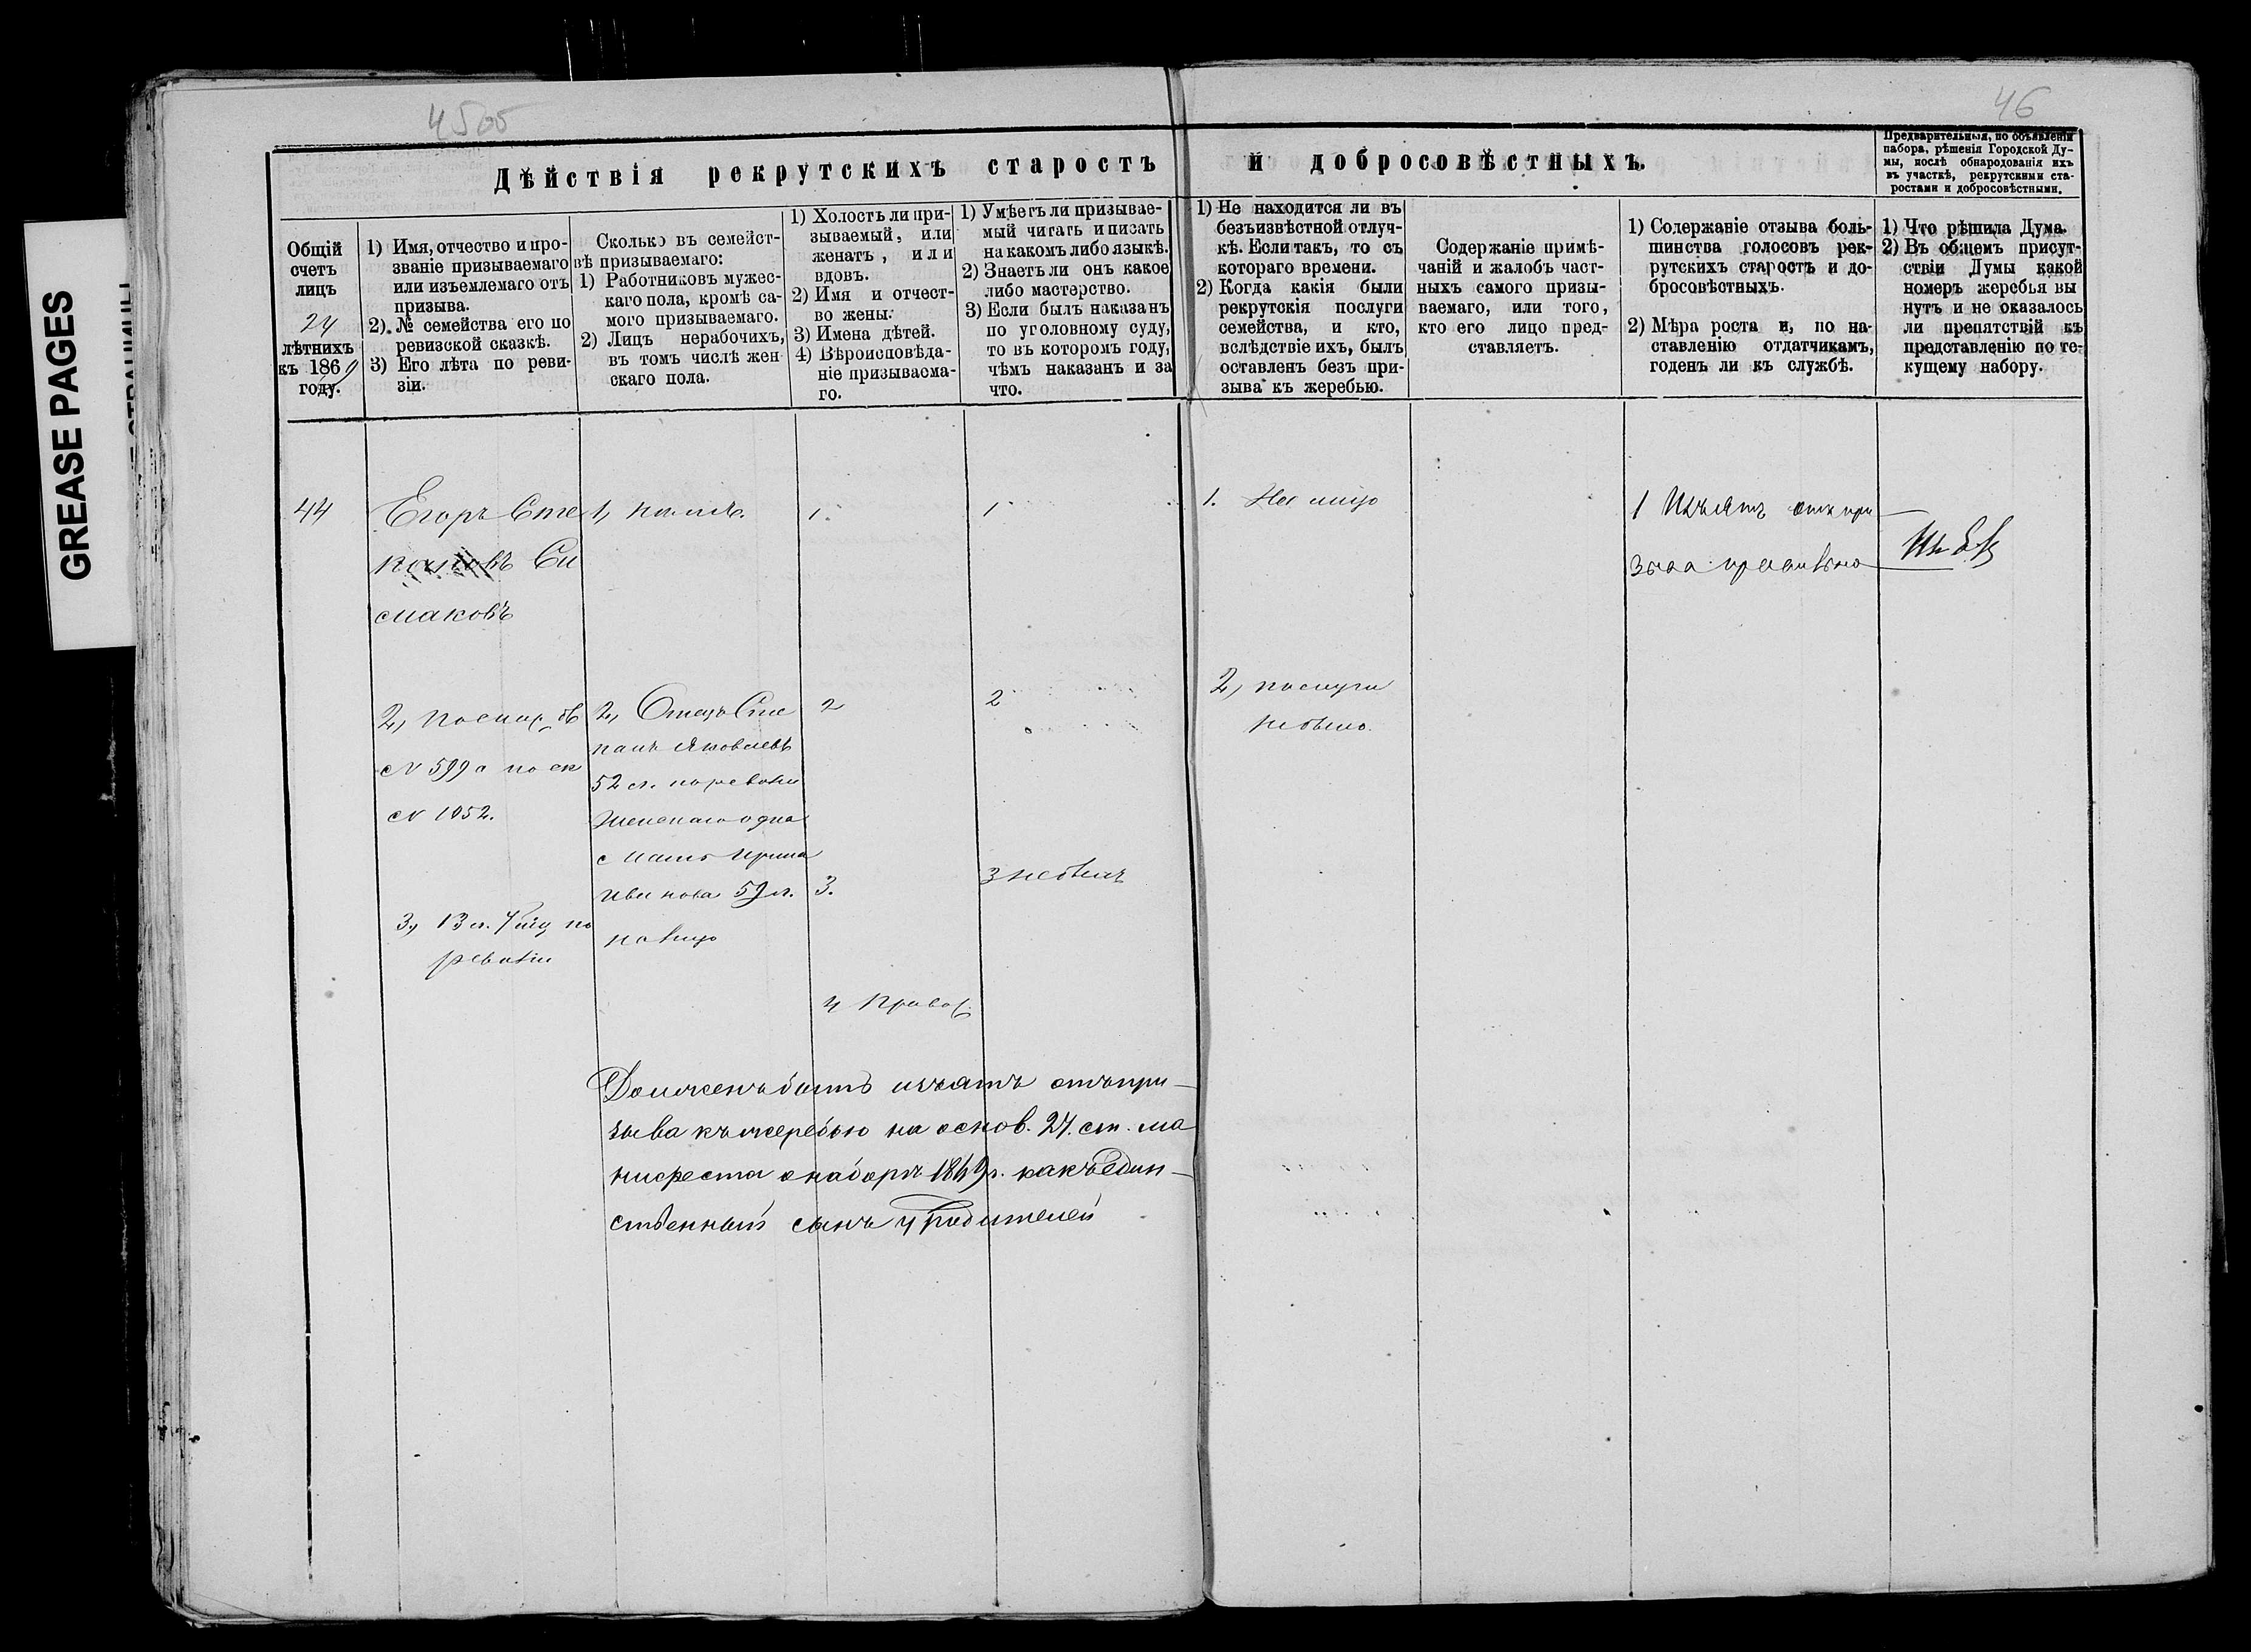 GREASE PAGES
45об
46
Дѣйствія рекрутскихъ старостъ и добросовѣстныхъ.
Предварительныя, по объявленіи
набора, рѣшенія Городской Ду-
мы, послѣ обнародованія ихъ
въ участкѣ, рекрутскими ста-
ростами и добросовѣстными.
Общій
счетъ
лицъ
24
лѣтнихъ
къ 1869
году.
1) Имя, отчество и про-
званіе призываемаго
или изъемлемаго отъ
призыва.
2) № семейства его по
ревизской сказкѣ.
3) Его лѣта по реви-
зіи.
Сколько въ семейст-
вѣ призываемаго:
1) Работниковъ мужес-
каго пола, кромѣ са-
мого призываемаго.
2) Лицъ нерабочихъ,
въ томъ числѣ жен
скаго пола.
1) Холостъ ли при-
зываемый, или
женатъ, или
вдовъ.
2) Имя и отчест-
во жены.
3) Имена дѣтей.
4) Вѣроисповѣда-
ніе призываема-
го.
1) Умѣетъ ли призывае-
мый читать и писать
на какомъ либо языкѣ.
2) Знаетъ ли онъ какое
либо мастерство.
3) Если былъ наказанъ
по уголовному суду,
то въ которомъ году,
чѣмъ наказанъ и за
что.
1) Не находится ли въ
безъизвѣстной отлуч-
кѣ. Если такъ, то съ
котораго времени.
2) Когда какія были
рекрутскія послуги
семейства, и кто,
вслѣдствіе ихъ, былъ
оставленъ безъ при-
зыва къ жеребью.
Содержаніе примѣ-
чаній и жалобъ част-
ныхъ самого призы-
ваемаго, или того,
кто его лицо пред-
ставляетъ.
1) Содержаніе отзыва боль-
шинства голосовъ рек-
рутскихъ старостъ и до-
бросовѣстныхъ.
2) Мѣра роста и, по на-
ставленію отдатчикамъ,
годенъ ли къ службѣ.
1) Что рѣшила Дума.
2) Въ общемъ присут-
ствіи Думы какой
номеръ жеребья вы
нутъ и не оказалось
ли препятствій къ
представленію по те-
кущему набору.
44
Егоръ Сте
пановъ Си
маковъ
2,
№ 599 а по ск
№ 1052.
3, 13 л. по
ревизіи
1,
2, Отецъ Сте
панъ Яковлевъ
52 л. по ревизіи
Женскаго одна
Мать Ирина
Иванова 59 л.
на лицо
1.
2
3.
4 Правос.
1
2
3 не былъ
1. На лицо
2, послуги
не было.
1 Изъятъ отъ при
зыва правильно
Должень быть изъятъ отъ при-
зыва къ жеребью на основ. 24. ст. ма
нифеста о наборѣ 1869 г. какъ един-
ственный сынъ у родителей